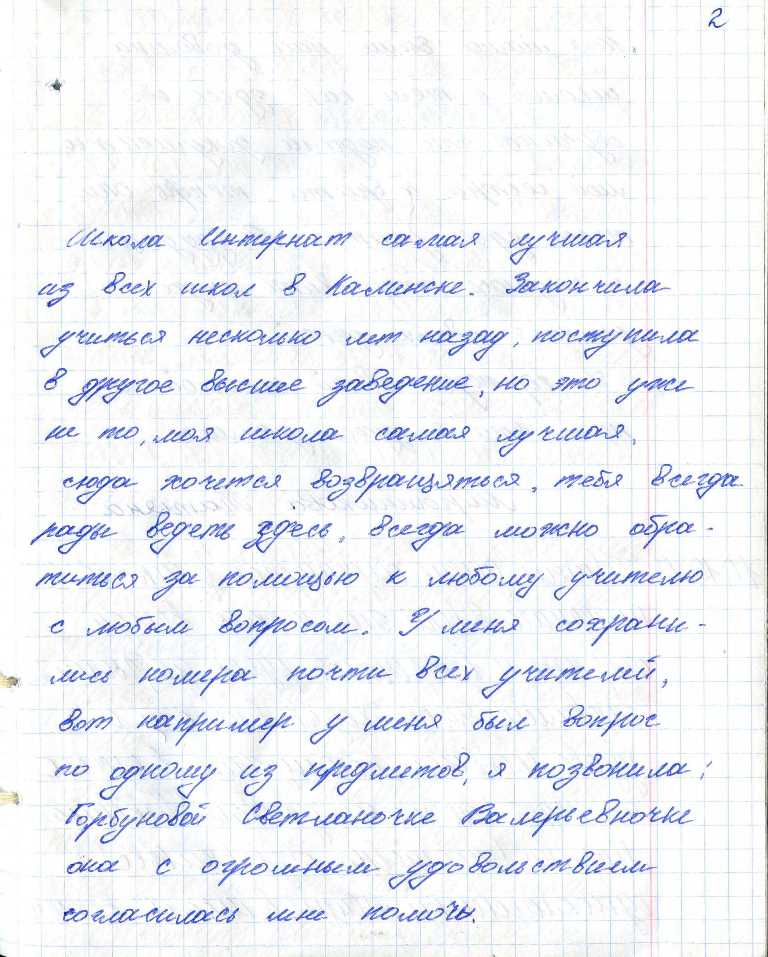 2
Школа Интернат самая лучшая
из всех школ в Каменске. Закончила
учиться несколько лет назад, поступила
в другое высшее заведение, но это уже
не то, моя школа самая лучшая,
сюда хочется возвращяться, тебя всегда
рады ведеть здесь, всегда можно обра-
титься за помощью к любому учителю
с любым вопросом. У меня сохрани-
лись номера почти всех учителей,
вот например у меня был вопрос
по одному из предметов, я позвонила:
Горбуновой Светланочке Валерьевночке
она с огромным удовольствием
согласилась мне помочь.